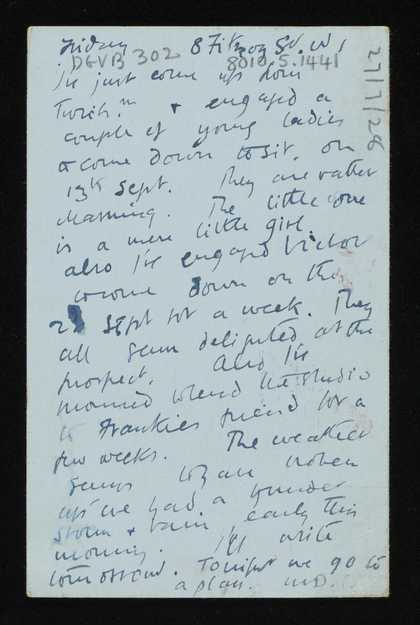 Friday 8 Fitzroy Sq. W1
DGVB 302 8010.5.1441
27/7/28
I've just come up from
Twick'm & engaged a
couple of young ladies
to come down to sit, on
13th Sept. They are rather
charming. The little one
is a mere little girl.
also I've engaged Victor
to come down on the
2 Sept for a week. They
all seem delighted at the
prospect. And I've
promised to lend the studio
to Frankies friend for a
few weeks. The weather
seems to have broken
up we had a thunder
storm & rain early this
morning. I'll write
tomorrow. Tonight we go to
a play.